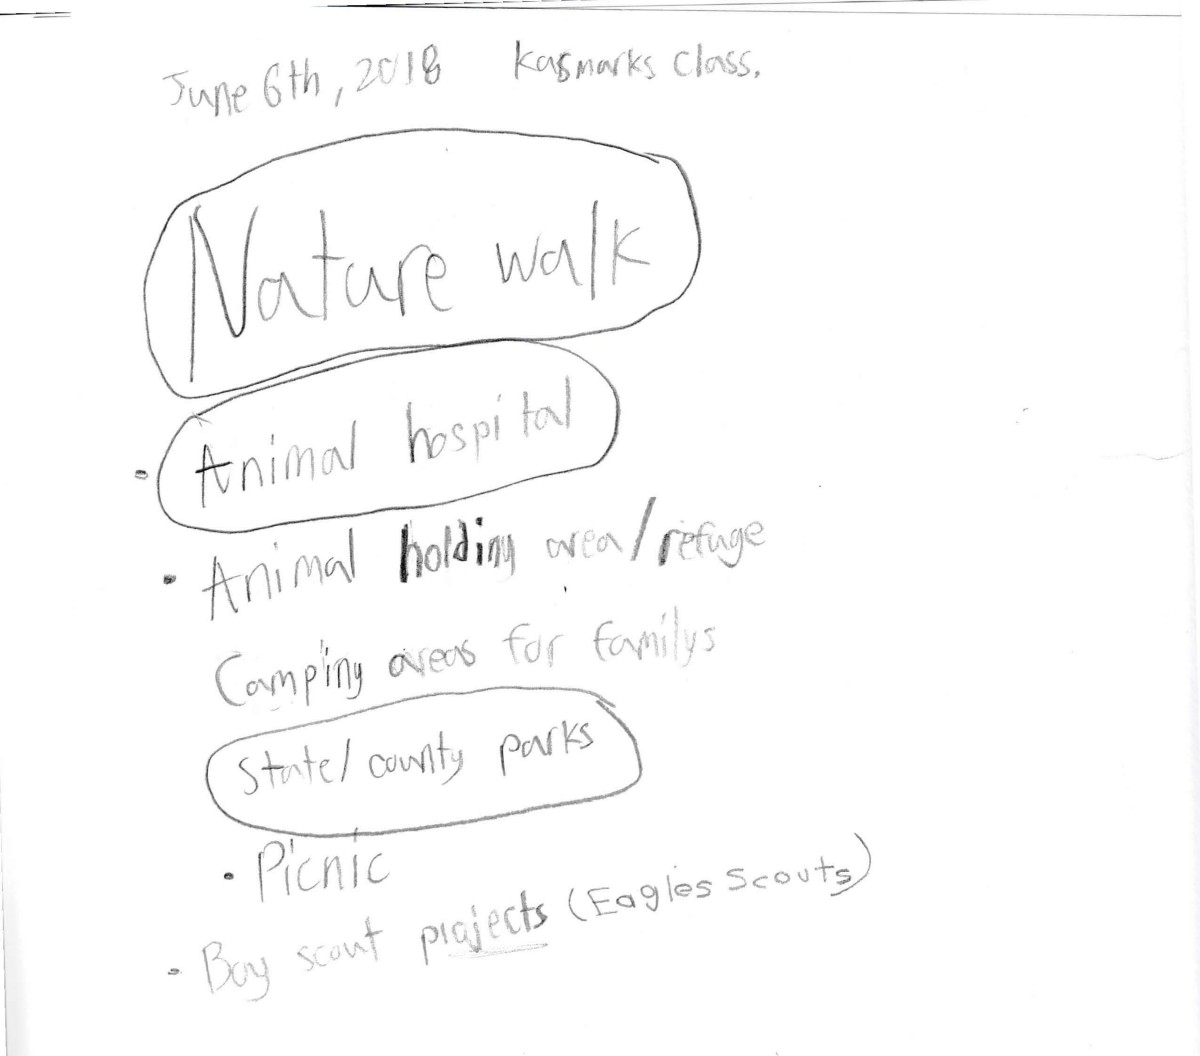 June 6th, 2018 Kasmarks Class.
Nature walk
• Animal hospital
• Animal holding area/refuge
Camping areas for familys
State/county parks
• Picnic
• Boy scout projects (Eagles Scouts)